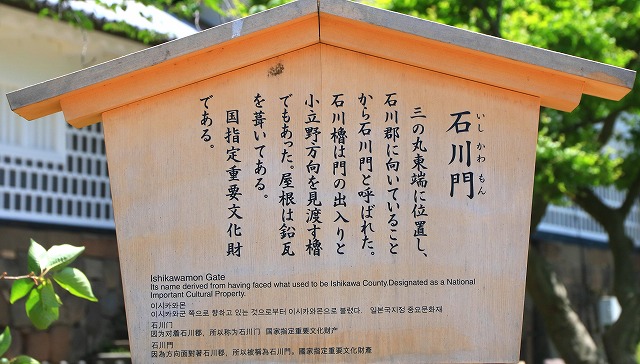 石川門
いしかわもん
三の丸東端に位置し、
石川郡に向いていること
から石川門と呼ばれた。
石川櫓は門の出入りと
小立野方向を見渡す櫓
でもあった。屋根は鉛瓦
を葺いてある。
国指定重要文化財
である。
Ishikawamon Gate
Its name derived from having faced what used to be Ishikawa County.Designated as a National
Important Cultural Property.
이시카와몬
이시카와군 쪽으로 향하고 있는 것으로부터 이시카와몬으로 불렸다. 일본국지정 중요문화재
石川门
因为对着石川郡，所以称为石川门 国家指定重要文化财产
石川門
因為方向面對著石川郡，所以被稱為石川門。國家指定重要文化財產